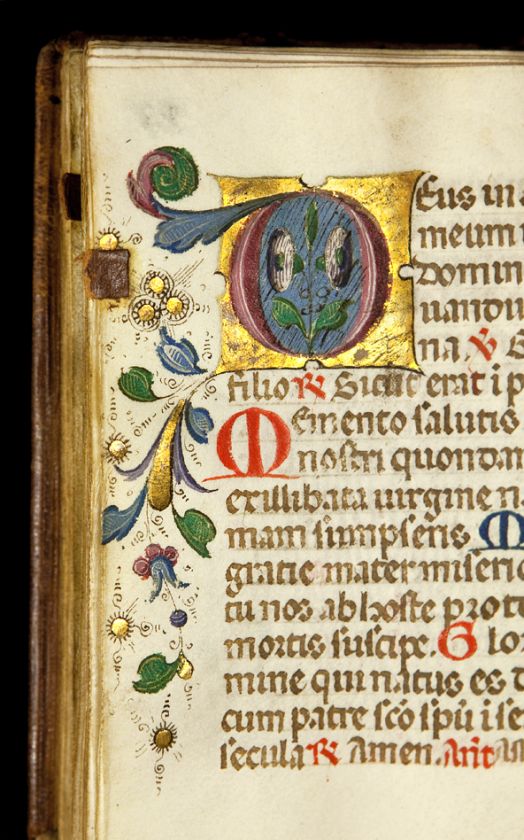 DEus in a
meum i
Domin
uandu
na. ℣ G
filio ℟ Sicut erat i p
Memento salutis
nostri quondam
ex illibata uirgine n
mam sumpseris. M
gratie mater miseric
tu nos ab hoste prot
mortis suscipe. Glor
mine qui natus es d
cum patre sco spu i se
secula ℟ Amen. Ant An